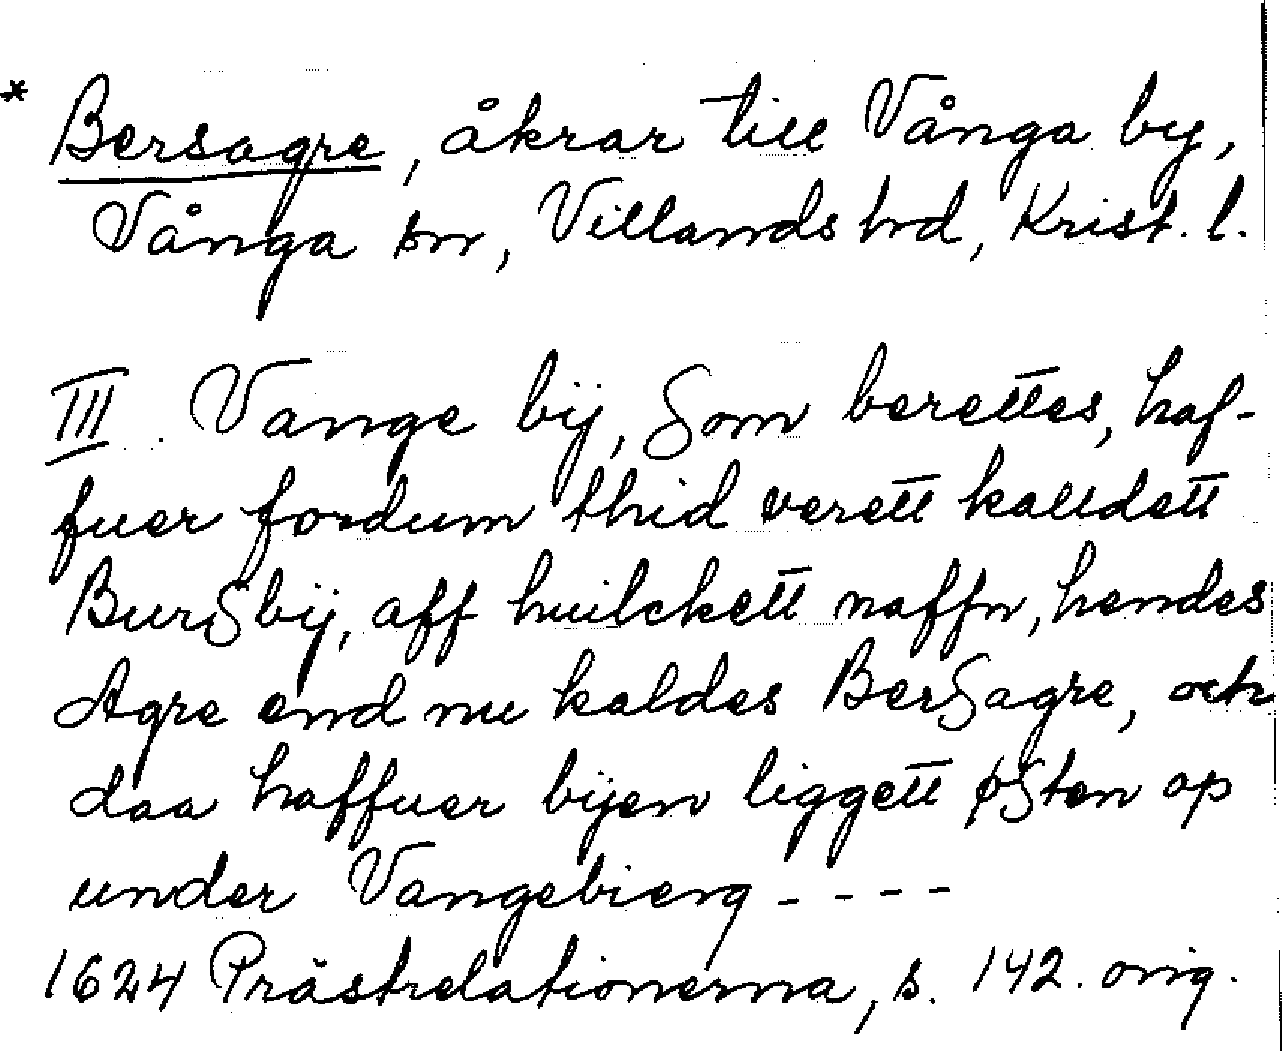 * Bersagre, åkrar till Vånga by,
Vånga sn, Villands hd, Krist. l.
III. Vange bÿ, Som berettes, haf-
fuer fordum thid verett kalldett
BurSbÿ, aff huilckett naffn, hendes
Agre end nu kaldes BerSagre, och
daa haffuer bÿen liggett øSten op
under Vangebierg - - - -
1624 Prästrelationerna, s. 142. orig.